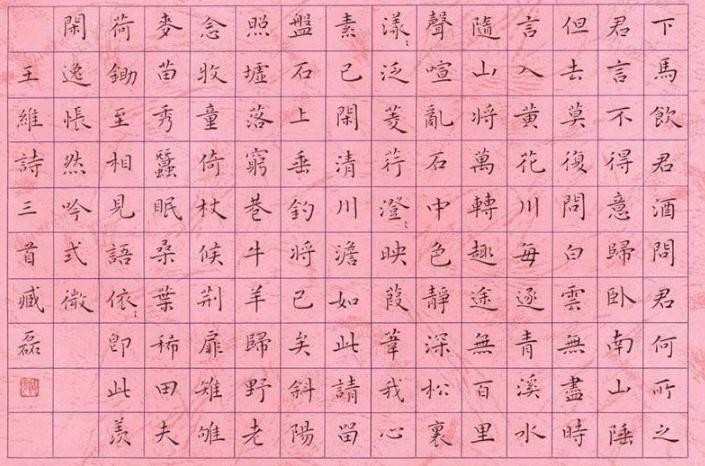 下馬飲君酒問君何所之
君言不得意歸臥南山陲
但去莫復問白雲無盡時
言入黃花川每逐青溪水
隨山將萬轉趣途無百里
聲喧亂石中色靜深松裏
漾〻泛菱荇澄〻映葭葦我心
素已閑清川澹如此請留
盤石上垂釣將已矣斜陽
照墟落窮巷牛羊歸野老
念牧童倚杖候荆扉雉雊
麥苗秀蠶眠桑葉稀田夫
荷鋤至相見語依〻即此羨
閑逸悵然吟式微
王維詩三首臧磊